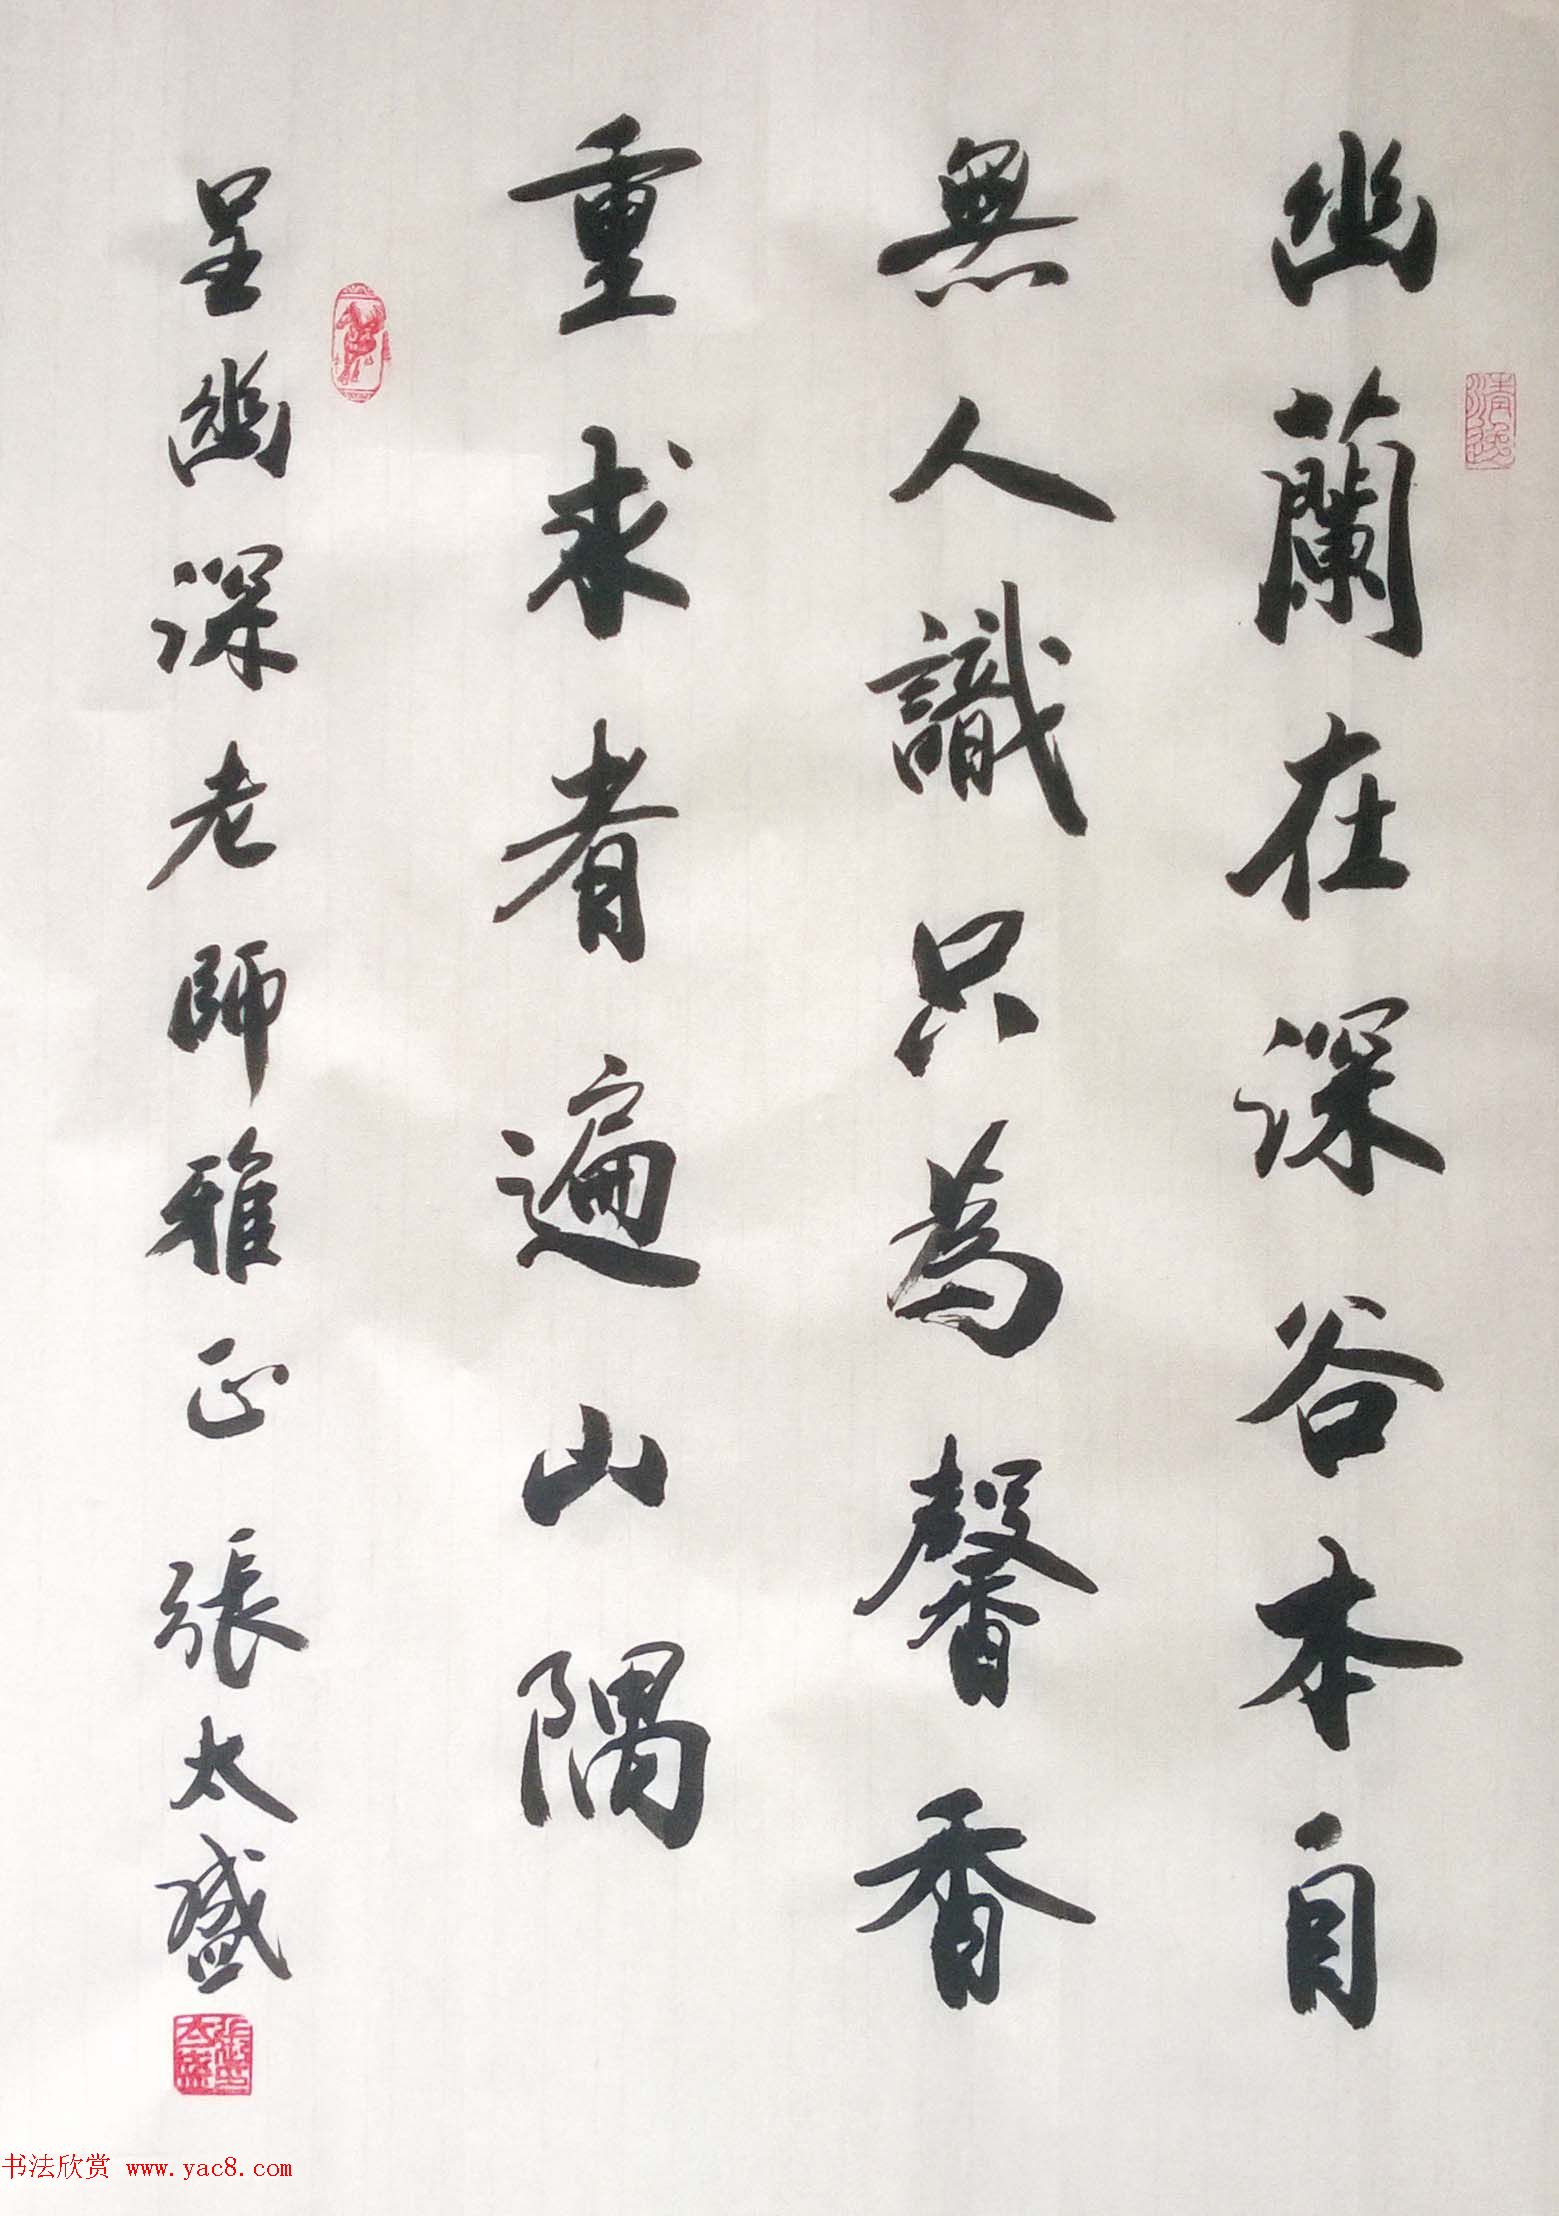 幽蘭在深谷本自
無人識只為馨香
重求者遍山隅
呈幽深老師雅正 張太盛
清逸
張氏太盛
书法欣赏 www.yac8.com